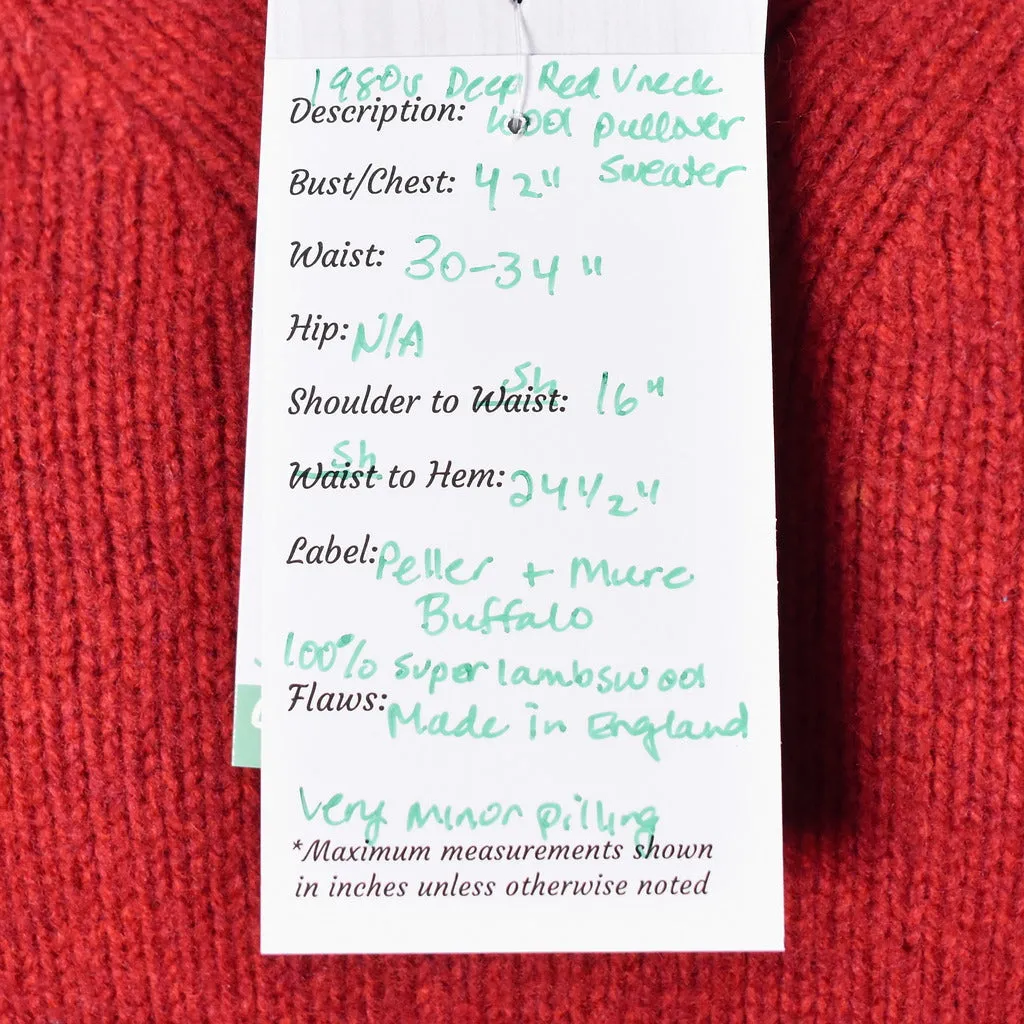 1980s Deep Red Vneck
Description: wool pullover
sweater
Bust/Chest: 42"
Waist: 30-34"
Hip: N/A
Sh
Shoulder to Waist: 16"
Sh
Waist to Hem: 24 1/2"
Label: Peller + Mure
Buffalo
100% super lambswool
Flaws: Made in England
Very minor pilling
*Maximum measurements shown
in inches unless otherwise noted